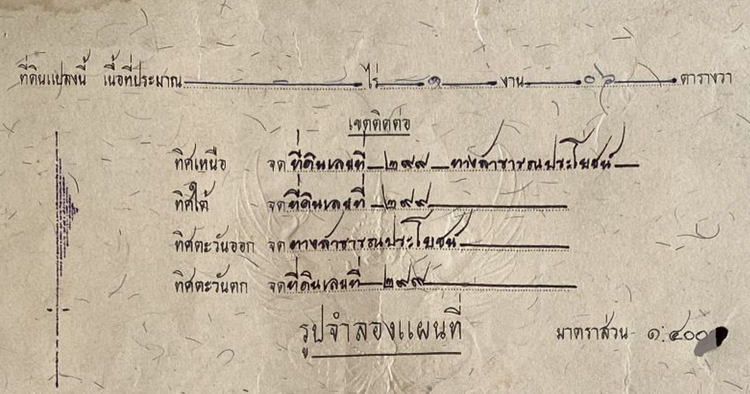 ที่ดินแปลงนี้ เนื้อที่ประมาณ - ไร่ ๑ งาน ๐๖ ตารางวา
เขตติดต่อ
ทิศเหนือ จด ที่ดินเลขที่ ๒๙๙ ทางสาธารณประโยชน์
ทิศใต้ จด ที่ดินเลขที่ ๒๙๙
ทิศตะวันออก จด ทางสาธารณประโยชน์
ทิศตะวันตก จด ที่ดินเลขที่ ๒๙๙
รูปจำลองแผนที่ มาตราส่วน ๑:๔๐๐